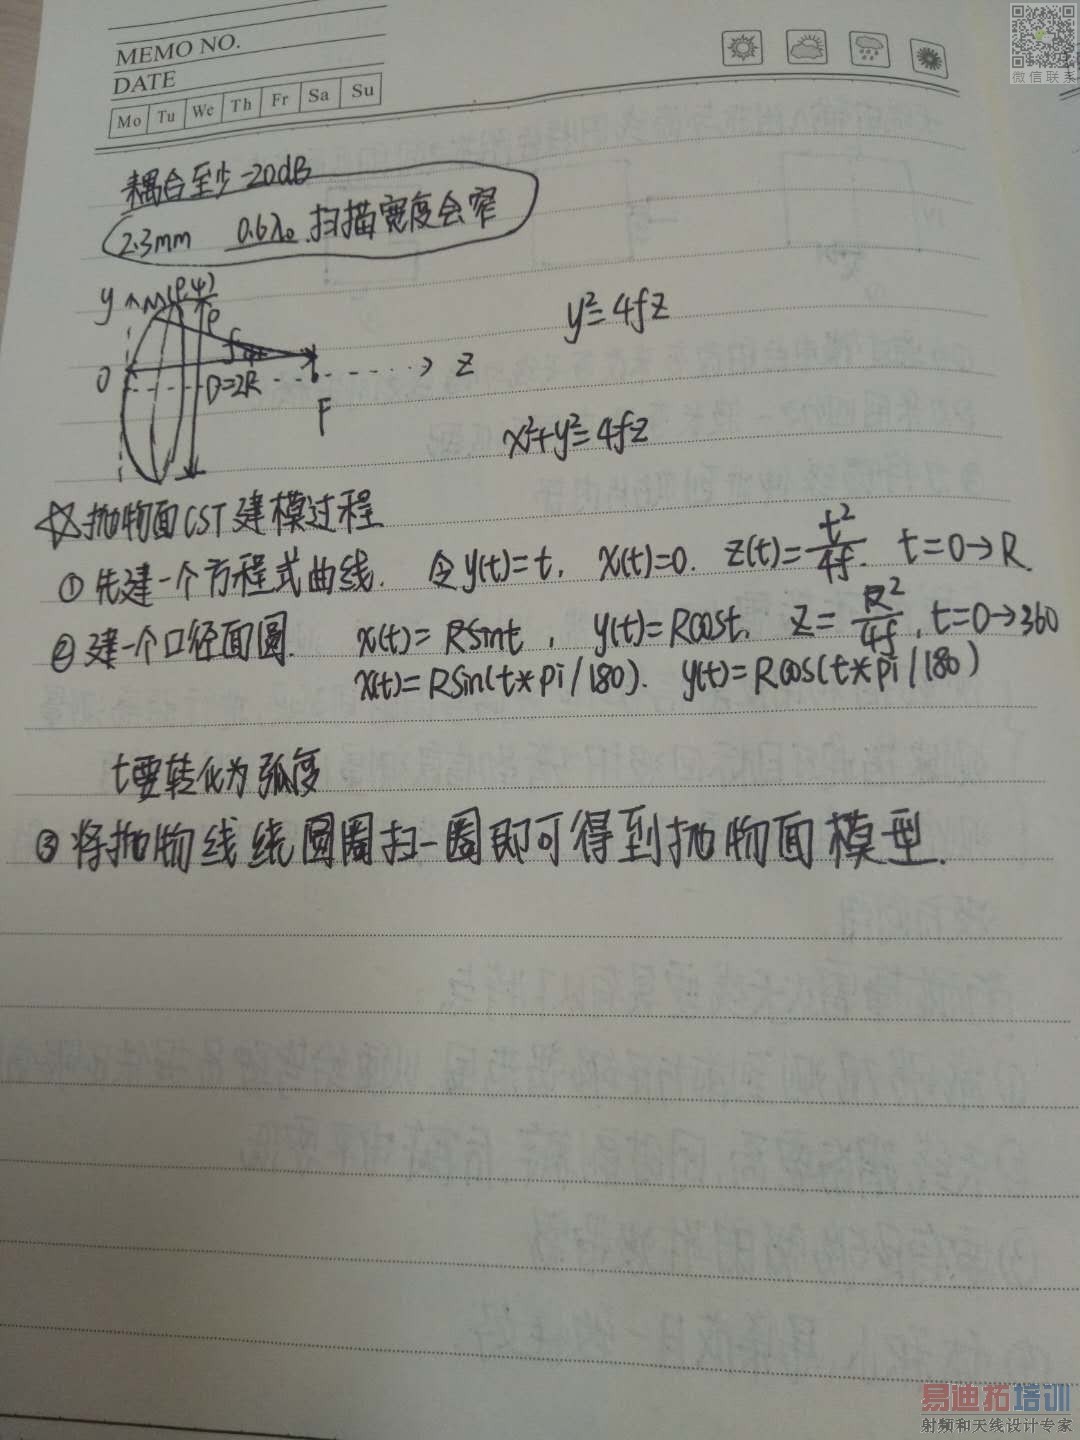 微信联系
MEMO NO.
DATE
Mo Tu We Th Fr Sa Su
耦合至少-20dB
2.3mm 0.6λ₀.扫描宽度会窄
y M(ρ,ψ)
ρ
f ψ
O D=2R Z
F
y²=4fz
x²+y²=4fz
☆抛物面CST建模过程
①先建一个方程式曲线. 令y(t)=t, x(t)=0. z(t)=t²/4f. t=0→R.
②建一个口径面圆. x(t)=Rsint, y(t)=Rcost, z=R²/4f, t=0→360
x(t)=Rsin(t*pi/180). y(t)=Rcos(t*pi/180)
t要转化为弧度
③将抛物线绕圆圈扫一圈即可得到抛物面模型.
易迪拓培训
射频和天线设计专家